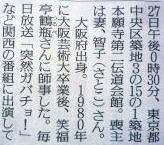 27日午後0時30分、東京都
中央区築地3の15の1築地
本願寺第二伝道会館。喪主
は妻、智子(さとこ)さん。
大阪府出身。1980年
に大阪芸術大卒業後、笑福
亭鶴瓶さんに師事した。毎
日放送「突然ガバチョ!」
など関西の番組に出演して